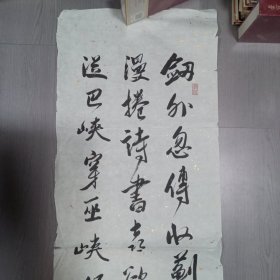 劔外忽傳收薊
漫捲詩書喜欲
從巴峽穿巫峽